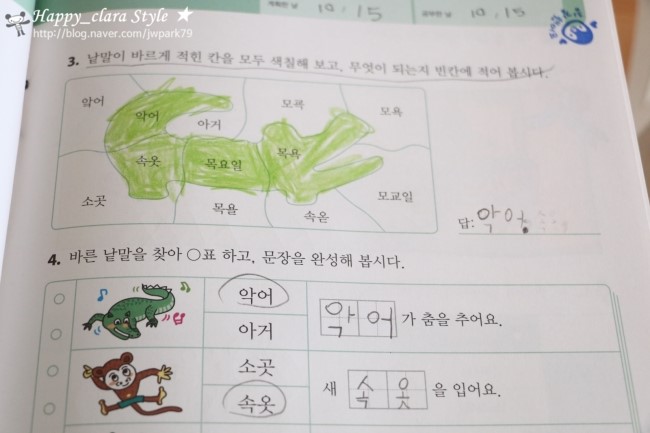 Happy_clara Style ★
http://blog.naver.com/jwpark79
10 : 15 10 : 15
3. 낱말이 바르게 적힌 칸을 모두 색칠해 보고, 무엇이 되는지 빈칸에 적어 봅시다.
악어 악어 아거 모굑 모욕
속옷 목요일 목욕
소곳 목욜 속옫 모교일
답: 악어
4. 바른 낱말을 찾아 ○표 하고, 문장을 완성해 봅시다.
악어
아거
악어 가 춤을 추어요.
소곳
속옷
새 속옷 을 입어요.